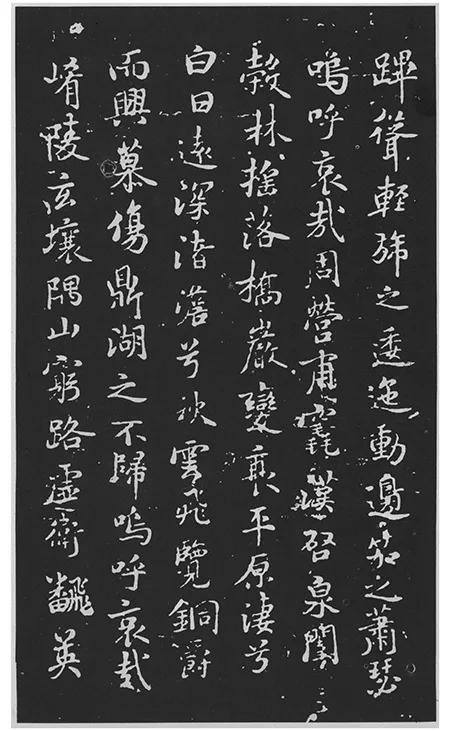 蹕聳輕旆之逶迤動邊笳之蕭瑟
嗚呼哀哉周營甫竁漢啓泉闈
穀林搖落橋巖變衰平原淒兮
白日遠深渚蒼兮秋雲飛覽銅爵
而興慕傷鼎湖之不歸嗚呼哀哉
崤陵玄壤隅山窮路虛衛翻英